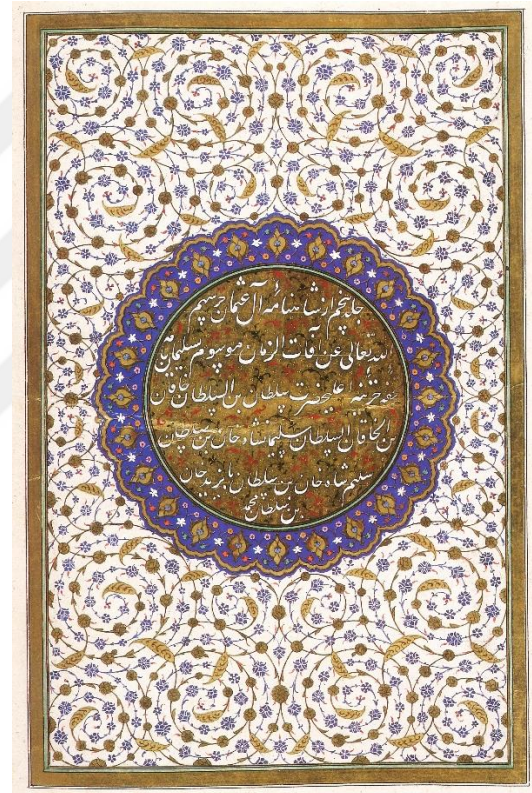 جلد پنجم از شاهنامهٔ آل عثمان حرسهم
الله تعالی عن آفات الزمان موسوم بسلیمان‌نامه
علیحضرت سلطان بن السلطان خاقان
بن الخاقان السلطان سلیمانشاه خان بن صاحبقران
سلیم شاه خان بن سلطان بایزید خان
بن سلطان محمد